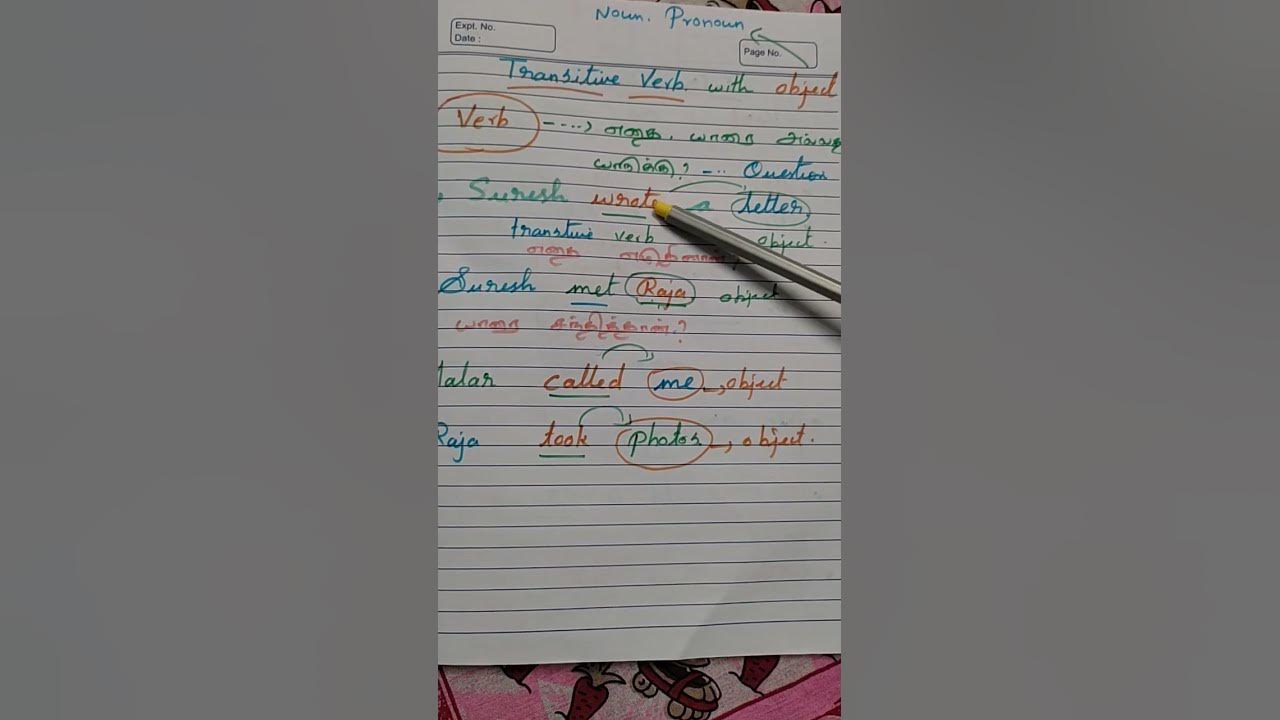 Noun. Pronoun
Expl. No.
Date :
Page No.
Transitive Verb with object
Verb ----> எதை, யாரை அல்லது
யாருக்கு? -- Question
Suresh wrote a letter
transtive verb object.
எதை எழுதினான்
Suresh met Raja object
யாரை சந்தித்தான்?
alar called me → object
Raja took photos → object.